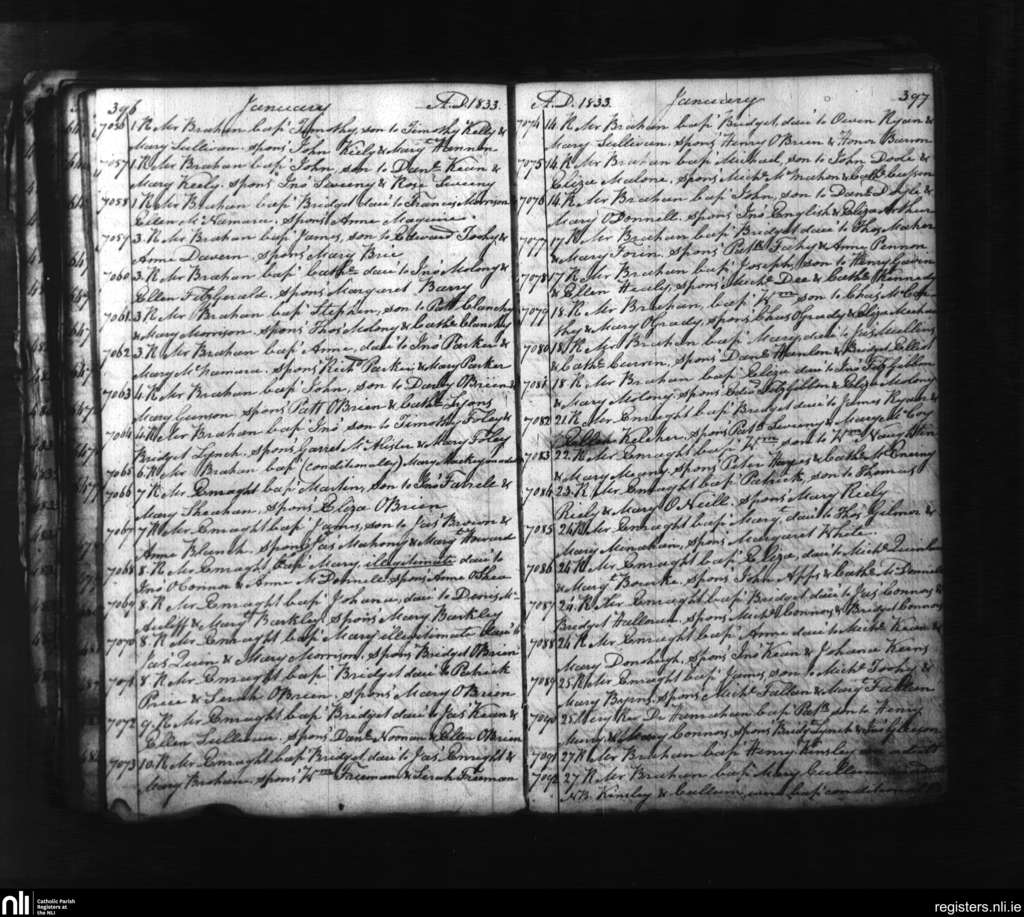 396 January A.D. 1833.
7056 1 R Mr Brahan bap Timothy, son to Timothy Kelly &
Mary Sullivan spons John Kiely & Mary Hennon
7057 1 R Mr Brahan bap John, son to Danl Keein &
Mary Keely. Spons Jno Sweeny & Rose Sweeny
7058 1 R Mr Brahan bap Bridget dau to Francis Morrison &
Ellen McNamara. Spons Anne Maguire.
7059 3. R Mr Brahan bap James, son to Edward Toohy &
Anne Davern spons Mary Brie
7060 3. R Mr Brahan bap Cathe dau to Jno Molony &
Ellen Fitzgerald, spons Margaret Barry
7061. 3 R Mr Brahan bap Stephen, son to Patt Clanchy
& Mary Morrison. spons Thos Molony & Cathe Clanchy
7062 3 R Mr Brahan bap Anne, dau to Jno Parker &
Mary McNamara, spons Richd Parker & Mary Parker
7063 4 R Mr Brahan bap John, son to Darby O'Brien &
Mary Cunson spons Patt O'Brien & Cathe Lyons
7064 4 R Mr Brahan bap Jno son to Timothy Foley &
Bridget Lynch. spons Garret & Mary Foley
7065 6 R Mr Brahan bap (conditionally) Mary
7066 7 R Mr Enraght bap Martin, son to Jno &
Mary Sheahan, spons Eliza O'Brien
7067 7 R Mr Enraght bap James, son to Jas Brown &
Anne Blanch. spons Jas Mahony & Margt Howard
7068 8. R Mr Enraght bap Mary, illegitimate dau to
Jno O'Connor & Anne McDonnell spons Anne O'Shea
7069 8. R Mr Enraght bap Johana, dau to Denis Mc
Auliff & Margt Barkley spons Mary Barkley
7070 8. R Mr Enraght bap Mary illegitimate dau to
Jas Quin & Mary Morrison. spons Bridget O'Brien
7071 8. R Mr Enraght bap Bridget dau to Patrick
Price & Sarah O'Brien, spons Mary O'Brien
7072 9. R Mr Enraght bap Bridget dau to Jas Kean &
Ellen Sullivan. spons Danl Noonan & Ellen O'Brien
7073 10. R Mr Enraght bap Bridget, dau to Jas Enright &
Mary Brahan, spons Wm Freeman & Sarah Freeman
A.D. 1833. January 397
7074 14. R Mr Brahan bap Bridget dau to Owen Ryan &
Mary Sullivan. Spons Henry O'Brien & Honor Barron
7075 14. R Mr Brahan bap Michael, son to John Doole &
Eliza Malone, spons Michl McMahon & Cathe
7076 14. R Mr Brahan bap John, son to Danl &
Mary O'Donnell. spons Jno English & Eliza Arthur
7077 17. R Mr Brahan bap Bridget dau to Thos Maher
& Mary Torin. spons Patk Fahy & Anne Pennon
7078 17 R Mr Brahan bap Joseph, son to Henry Gavin
& Ellen Healy, spons Michl Dee & Cathe Kennedy
7079 18. R Mr Brahan, bap Wm son to Chas McCar
thy & Mary O'Grady, spons Chas O'Grady & Eliza Meehan
7080 18. R Mr Brahan bap Mary, dau to Jas Mullins
& Cathe Curren, spons Danl Hanlon & Bridget Elliot
7081 18 R Mr Brahan bap Eliza dau to Jno Fitzgibbon
& Mary Molony, spons Edwd Fitzgibbon & Eliza Molony
7082 21 R Mr Enraght bap Bridget dau to James Ryan &
Ellen Keleher, spons Patk Sweeny & Mary McCoy
7083 22. R Mr Enraght bap Wm son to Wm Naughten
& Mary Magny spons Peter Hayes & Cathe McInerny
7084 23. R Mr Enraght bap Patrick, son to Thomas
Riely & Mary O'Neill. spons Mary Riely
7085 24 R Mr Enraght bap Mary, dau to Thos Gilmor &
Mary Menahan, spons Margaret Whele.
7086 24 R Mr Enraght bap Eliza, dau to Michl Quinlan
& Margt Bourke, spons John Apps & Cathe McDonnell
7087 24. R Mr Enraght bap Bridget dau to Jas Connors &
Bridget Halloran, spons Michl Connors & Bridget Connors
7088 24. R Mr Enraght bap Anne dau to Michl Kean &
Mary Donohogh, spons Jno Kean & Johanna Kerns
7089 25 R Mr Enraght bap James, son to Michl Toohy &
Mary Byrns, spons Michl Fallon & Margt Fallon
7090 25 Very Rev D. Hanrahan bap Patk son to Henry
& Mary Connors, spons Bridgt Lynch &
7091 27 R Mr Brahan bap Henry Kinsley an adult
7092 27 R Mr Brahan bap Mary Cullum
NB. Kinsley & Cullum were bap conditionally
nli Catholic Parish
Registers at
the NLI
registers.nli.ie